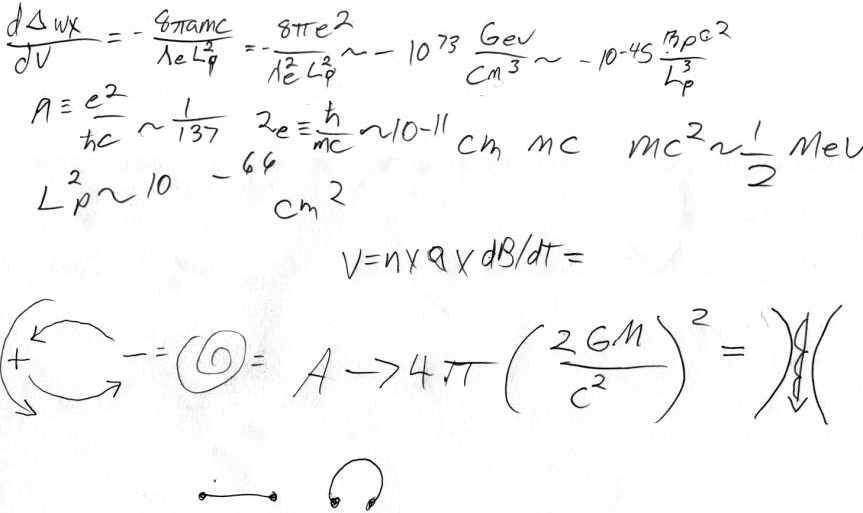 dΔwx/dV = - 8πamc/λeLp² = - 8πe²/λe²Lp² ~ - 10⁷³ GeV/cm³ ~ - 10⁻⁴⁵ mpc²/Lp³
A ≡ e²/ħc ~ 1/137 λe ≡ ħ/mc ~ 10-11 cm mc mc² ~ 1/2 MeV
Lp² ~ 10 ⁻⁶⁶ cm²
V = n x a x dB/dT =
+ - = = A → 4π (2GM/c²)² =